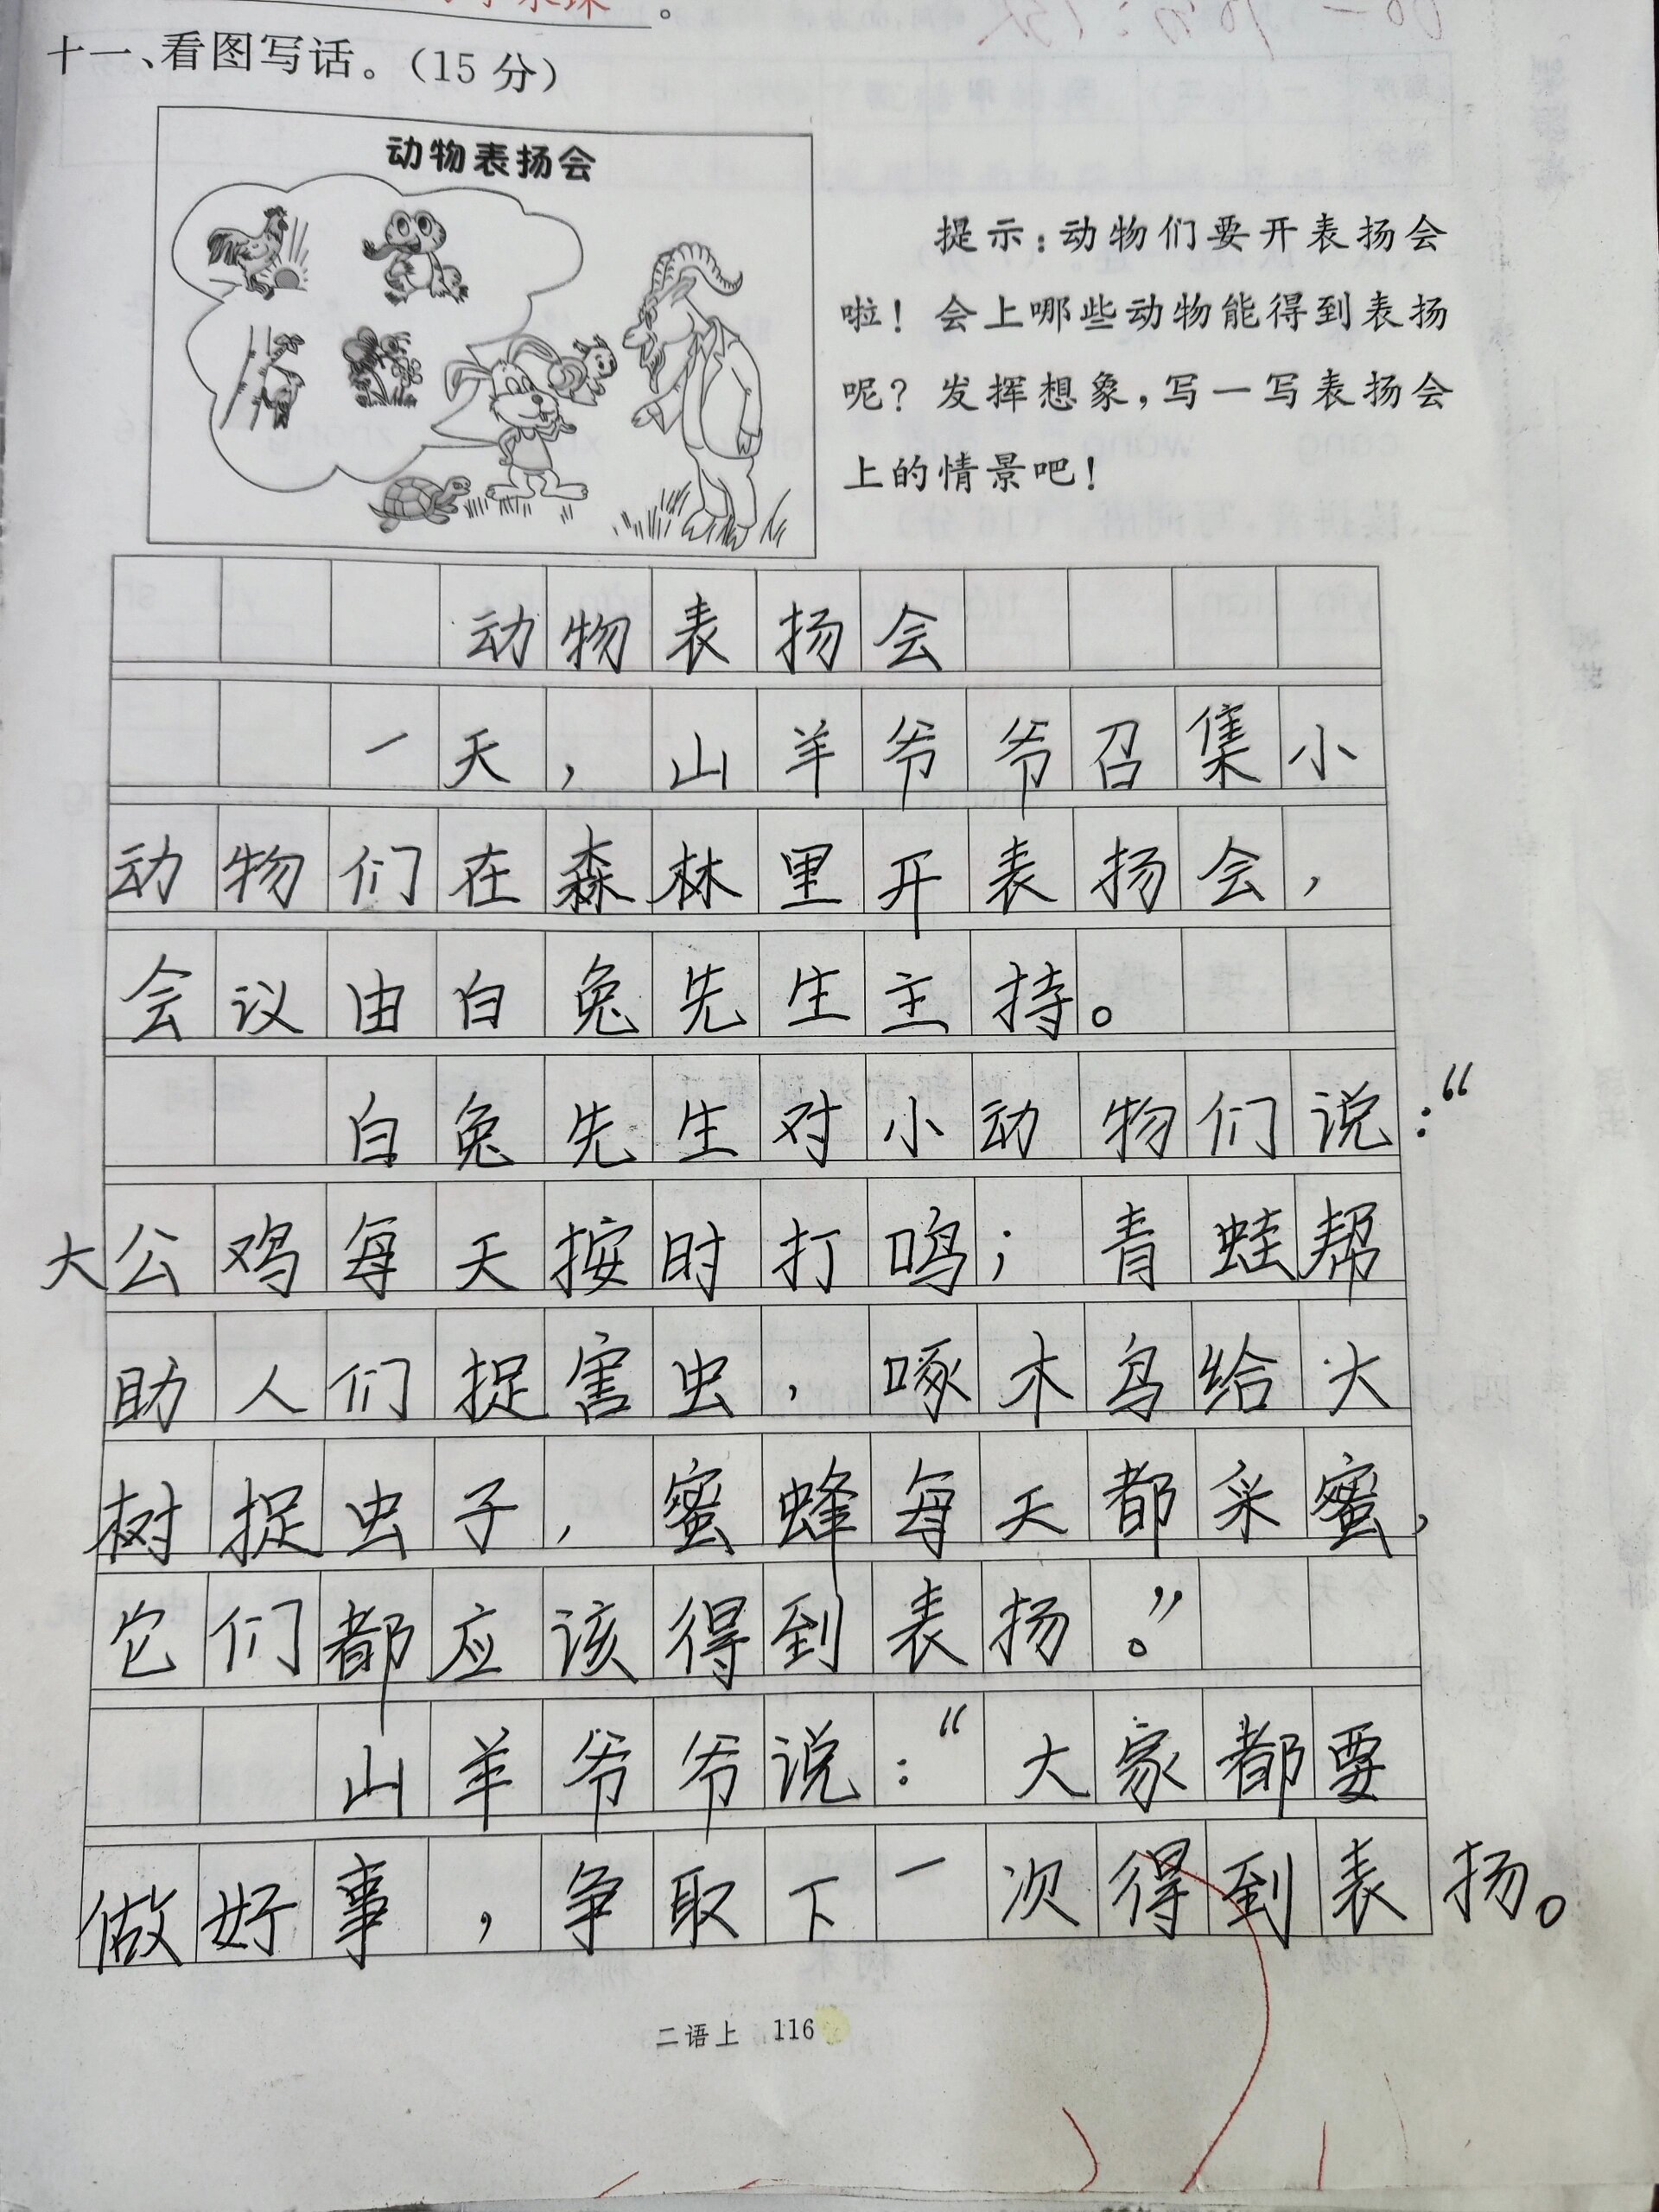 十一、看图写话。(15分)
动物表扬会
提示:动物们要开表扬会
啦!会上哪些动物能得到表扬
呢?发挥想象,写一写表扬会
上的情景吧!
动物表扬会
一天,山羊爷爷召集小
动物们在森林里开表扬会,
会议由白兔先生主持。
白兔先生对小动物们说:“
大公鸡每天按时打鸣;青蛙帮
助人们捉害虫,啄木鸟给大
树捉虫子,蜜蜂每天都采蜜,
它们都应该得到表扬。”
山羊爷爷说:“大家都要
做好事,争取下一次得到表扬。
二语上 116